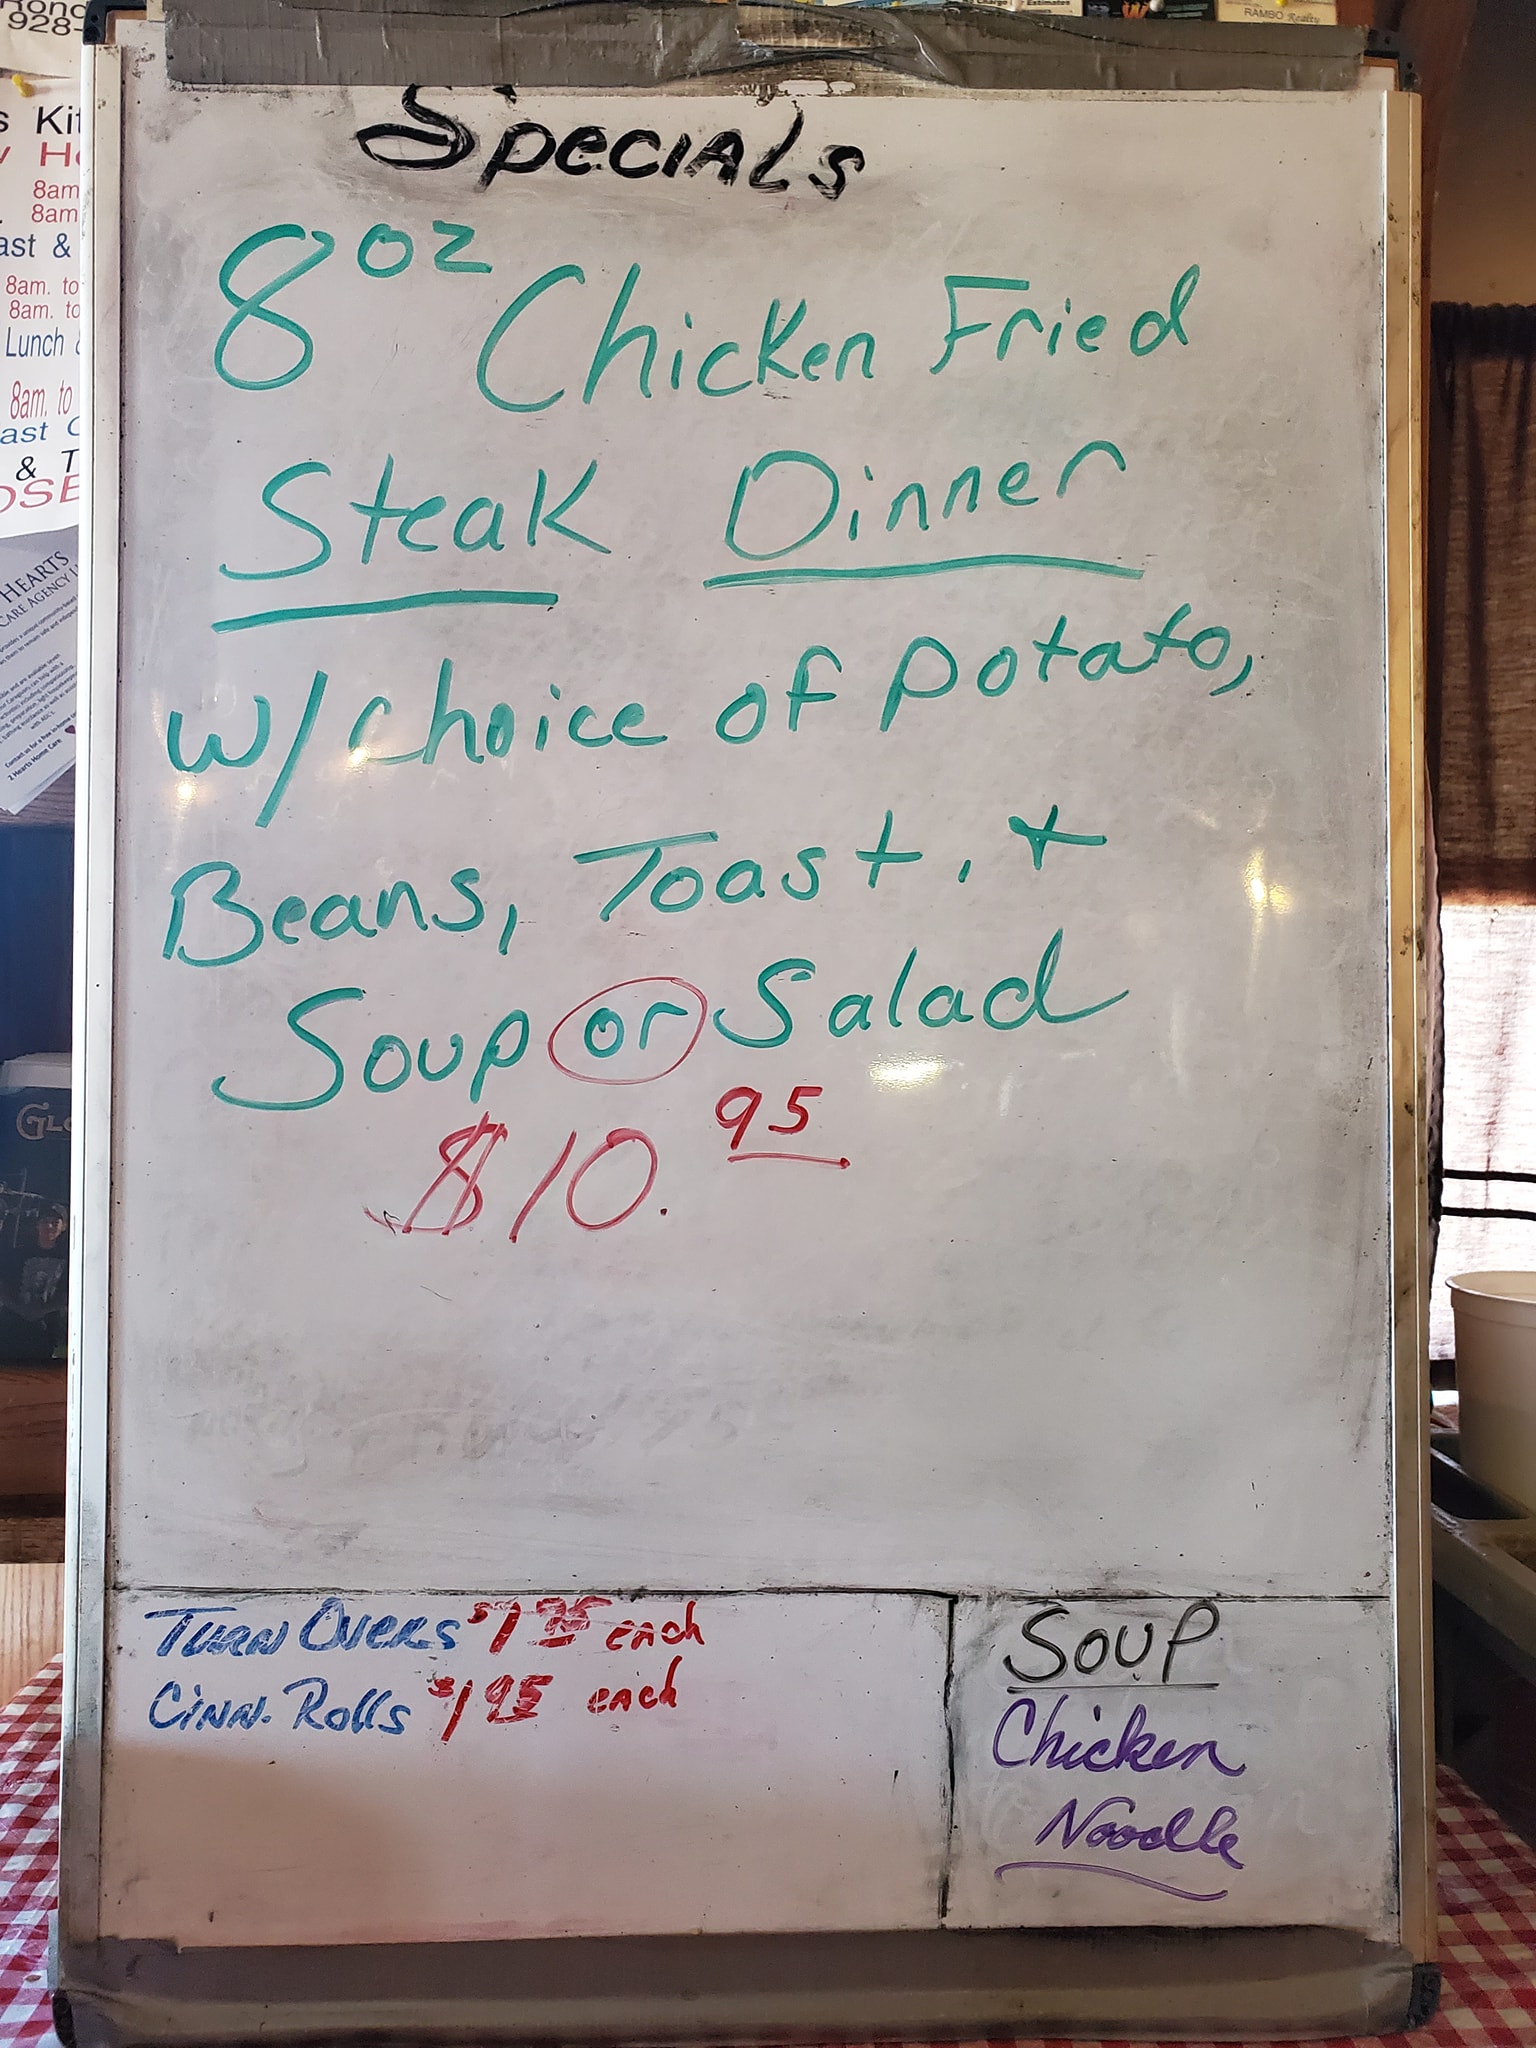 928-
s Kit
8am
8am
ast &
8am. to
8am. to
Lunch &
8am. to
ast
& T
OSE
HEARTS
CARE AGENCY
2 Hearts Home Care
RAMBO Realty
Specials
8 oz Chicken Fried
Steak Dinner
w/ choice of potato,
Beans, Toast, +
Soup or Salad
$10.95
Turn Overs $1 95 each
Cinn. Rolls $1 95 each
Soup
Chicken
Noodle